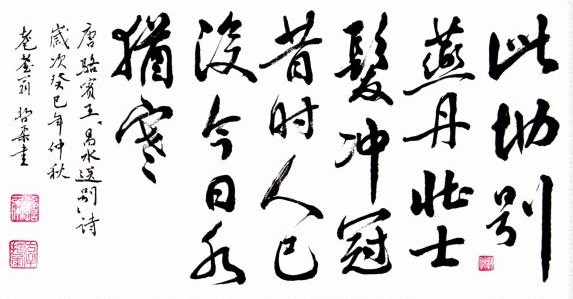 此地别
燕丹壮士
髮冲冠
昔时人已
没今日水
猶寒
唐駱賓王易水送别詩
歲次癸巳年仲秋
翁書